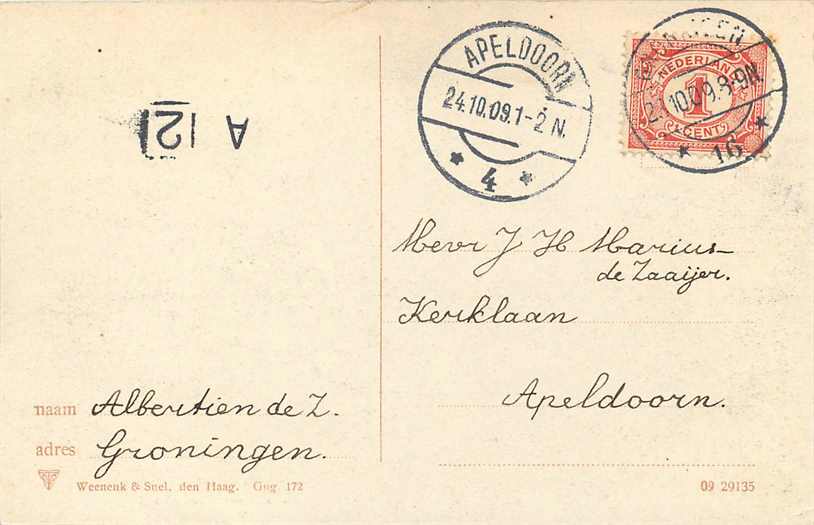 APELDOORN
24.10.09.1-2 N.
4
NEDERLAND
1
CENT
10.09.8-9N.
16
A 2
Mevr J H Marius-
de Zaaijer.
Kerklaan
Apeldoorn.
naam Albertien de Z.
adres Groningen.
Weenenk & Snel, den Haag. Gng 172
09 29135